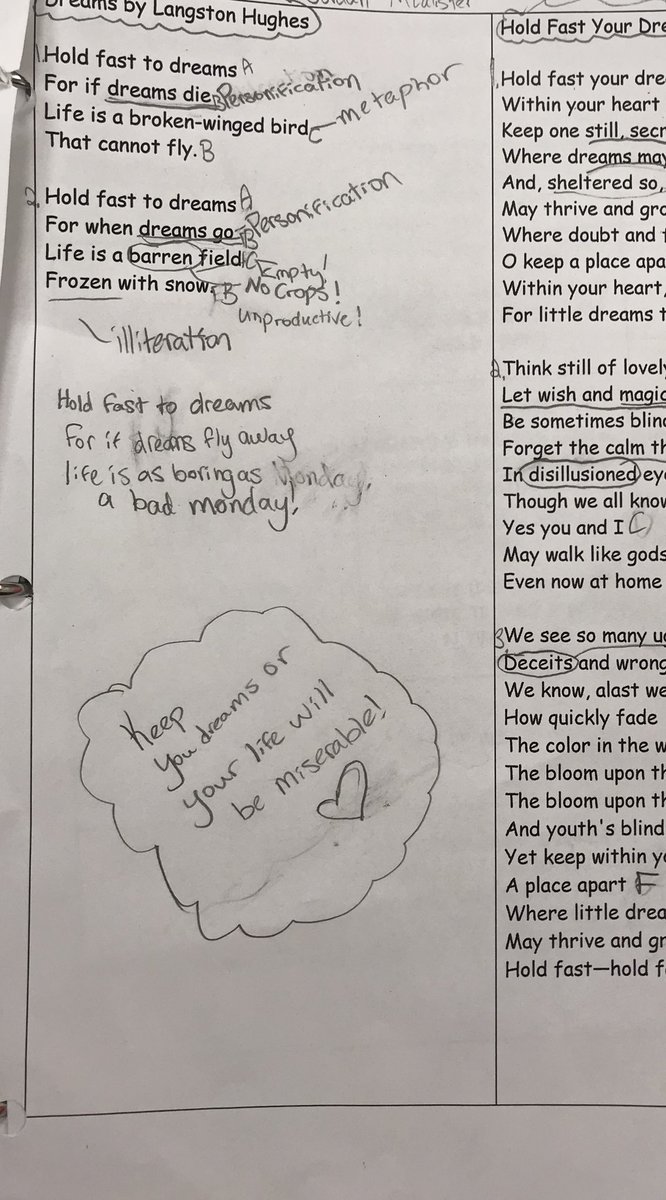 Dreams by Langston Hughes
1. Hold fast to dreams A
For if dreams die B Personification
Life is a broken-winged bird C metaphor
That cannot fly. B
2. Hold fast to dreams A
For when dreams go B Personification
Life is a barren field C Empty!
Frozen with snow. B No Crops!
unproductive!
illiteration
Hold fast to dreams
For if dreams fly away
life is as boring as Monday.
a bad monday!
Keep
you dreams or
your life will
be miserable!
Hold Fast Your Dre
1. Hold fast your dre
Within your heart
Keep one still, secr
Where dreams may
And, sheltered so,
May thrive and gro
Where doubt and f
O keep a place apa
Within your heart,
For little dreams t
2. Think still of lovely
Let wish and magic
Be sometimes blind
Forget the calm th
In disillusioned eye
Though we all know
Yes you and I C
May walk like gods
Even now at home
3 We see so many ug
Deceits and wrong
We know, alast we
How quickly fade
The color in the w
The bloom upon th
The bloom upon th
And youth's blind
Yet keep within yo
A place apart E
Where little drea
May thrive and gr
Hold fast—hold f